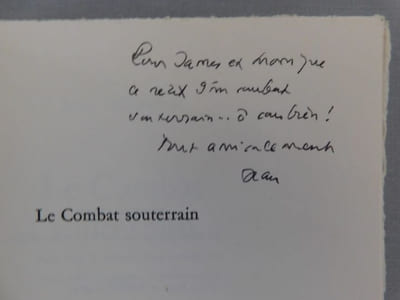 Pour James et Monique
ce récit d'un combat
souterrain.. ô combien!
Tout amicalement
Jean
Le Combat souterrain